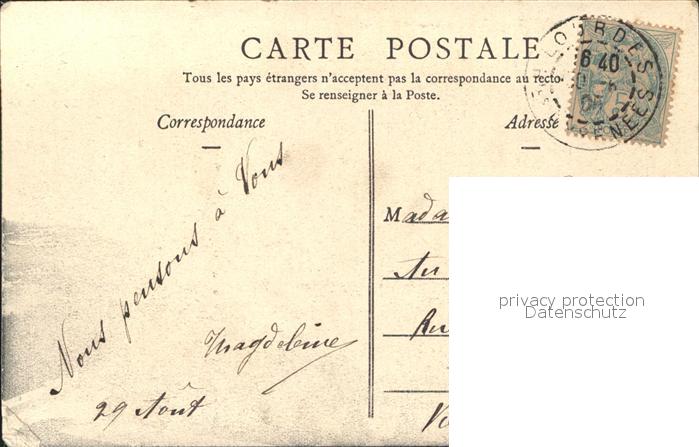 CARTE POSTALE
Tous les pays étrangers n'acceptent pas la correspondance au recto
Se renseigner à la Poste.
Correspondance
Adresse
LOURDES
6 40
Nous pensons à Vous
Magdeleine
29 Août
Mada
Au
Ru
privacy protection
Datenschutz